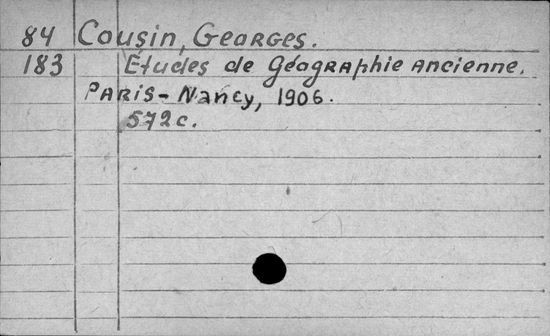 84 Cousin, Georges.
183 Études de Géographie ancienne.
Paris-Nancy, 1906.
572c.